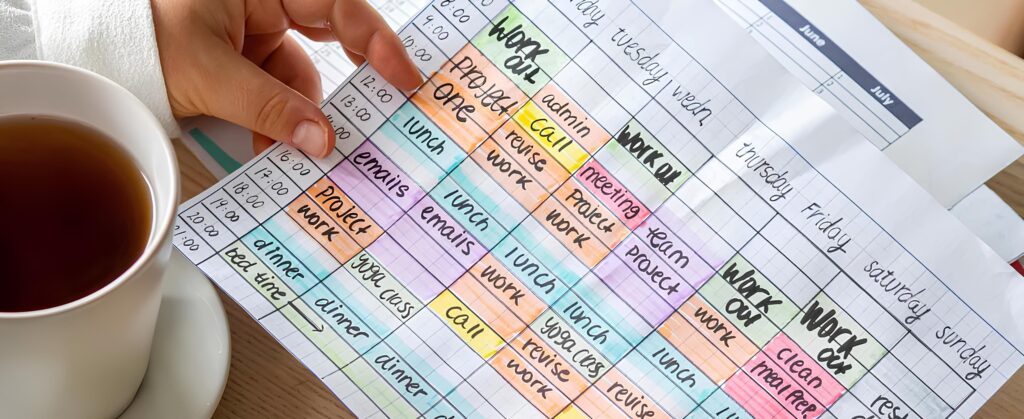 June
July
tuesday
wedn.
thursday
Friday
saturday
sunday
9:00
10:00
12:00
13:00
16:00
17:00
18:00
19:00
20:00
21:00
WORK
OUT
PROJECT
ONE
lunch
emails
Project
work
dinner
bed time
admin
call
revise
work
lunch
emails
yoga class
dinner
WORK OUT
meeting
Project
work
lunch
work
call
dinner
team
project
lunch
yoga class
revise
work
WORK
OUT
work
lunch
revise
WORK
OUT
clean
mealprep